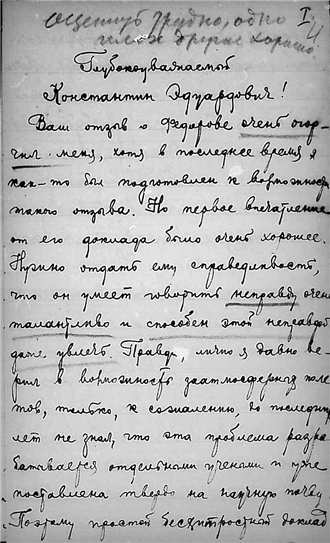 оценить трудно, одно I.
плохо другое хорошо. 4
Глубокоуважаемый
Константин Эдуардович!
Ваш отзыв о Федорове очень огор-
чил меня, хотя в последнее время я
как-то был подготовлен к возможности
такого отзыва. Но первое впечатление
от его доклада было очень хорошее.
Нужно отдать ему справедливость,
что он умеет говорить неправду очень
талантливо и способен этой неправдой
даже увлечь. Правда, лично я давно ве-
рил в возможность заатмосферных поле-
тов, только, к сожалению, до последних
лет не знал, что эта проблема разра-
батывается отдельными учеными и уже
поставлена твердо на научную почву.
Поэтому простой бесхитростный доклад